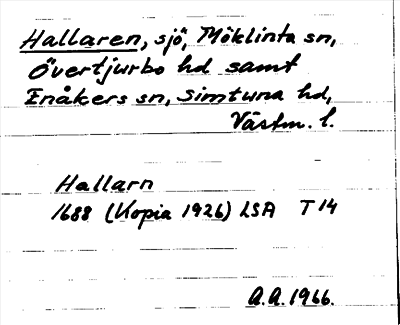 Hallaren, sjö, Möklinta sn,
Övertjurbo hd samt
Enåkers sn, Simtuna hd,
Västm. l.
Hallarn
1688 (Kopia 1926) LSA T 14
A.A. 1966.